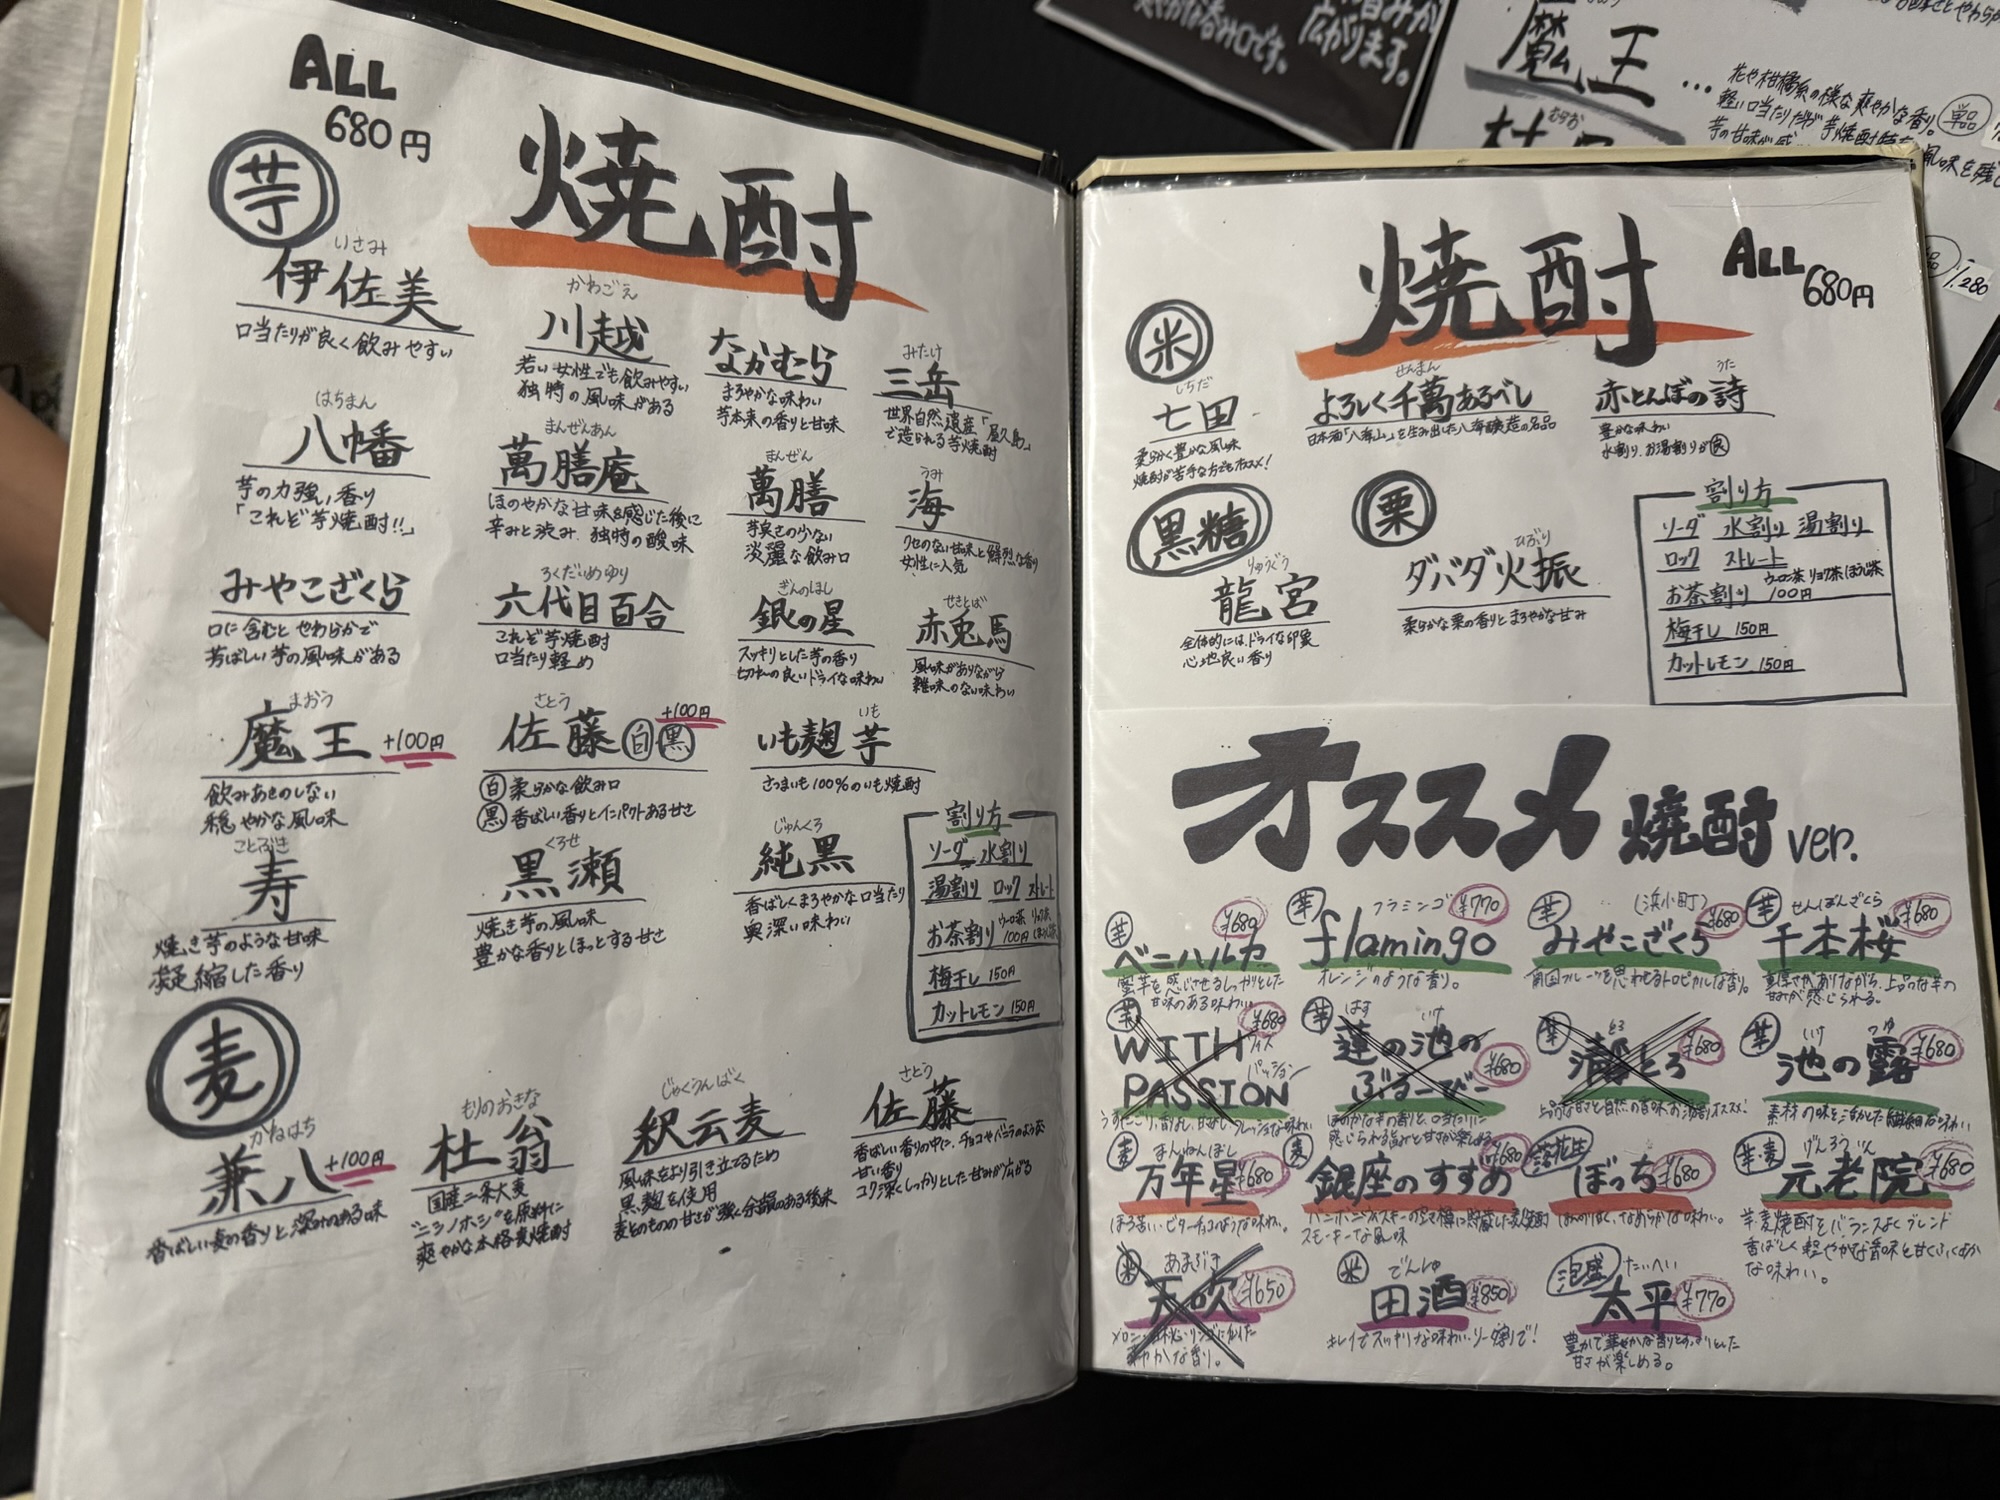 ALL
680円
焼酎
芋
いさみ
伊佐美
口当たりが良く飲みやすい
かわごえ
川越
若い女性でも飲みやすい
独特の風味がある
なかむら
まろやかな味わい
芋本来の香りと甘味
みたけ
三岳
世界自然遺産「屋久島」
で造られる芋焼酎
はちまん
八幡
芋の力強い香り
「これぞ芋焼酎!!」
まんぜんあん
萬膳庵
ほのやかな甘味を感じた後に
辛みと渋み、独特の酸味
まんぜん
萬膳
芋臭さの少ない
淡麗な飲み口
うみ
海
クセのない甘味と鮮烈な香り
女性に人気
みやこざくら
口に含むとやわらかで
芳ばしい芋の風味がある
ろくだいめゆり
六代目百合
これぞ芋焼酎
口当たり軽め
ぎんのほし
銀の星
スッキリとした芋の香り
切れの良いドライな味わい
せきとば
赤兎馬
風味がありながら
雑味のない味わい
まおう
魔王 +100円
飲みあきのしない
穏やかな風味
さとう
佐藤 白 黒 +100円
白 柔らかな飲み口
黒 香ばしい香りとインパクトある甘さ
いも
いも麹芋
さつまいも100%のいも焼酎
ことぶき
寿
焼き芋のような甘味
凝縮した香り
くろせ
黒瀬
焼き芋の風味
豊かな香りとほっとする甘さ
じゅんくろ
純黒
香ばしくまろやかな口当たり
奥深い味わい
割り方
ソーダ 水割り
湯割り ロック ストレート
お茶割り ウーロン茶 リョク茶 ほうじ茶 100円
梅干し 150円
カットレモン 150円
麦
かねはち
兼八 +100円
香ばしい麦の香りと深みのある味
もりのおきな
杜翁
国産二条大麦
"ニシノホシ"を原料に
爽やかな本格麦焼酎
じゃくうんばく
釈云麦
風味をより引き立てるため
黒麹を使用
麦そのものの甘さが強く余韻のある後味
さとう
佐藤
香ばしい香りの中に、チョコやバニラのような
甘い香り
コク深くしっかりとした甘みが広がる
焼酎
ALL
680円
米
しちだ
七田
柔らかく豊かな風味
焼酎が苦手な方でもオススメ!
せんまん
よろしく千萬あるべし
日本酒「八海山」を生み出した八海醸造の名品
うた
赤とんぼの詩
豊かな味わい
水割り、お湯割りが良
黒糖
りゅうぐう
龍宮
全体的にはドライな印象
心地良い香り
栗
ひぶり
ダバダ火振
柔らかな栗の香りとまろやかな甘み
割り方
ソーダ 水割り 湯割り
ロック ストレート
お茶割り ウーロン茶 リョク茶 ほうじ茶 100円
梅干し 150円
カットレモン 150円
オススメ 焼酎 ver.
芋 ¥680
ベニハルカ
蜜芋を感じさせるしっかりとした
甘味のある味わい
芋 フラミンゴ ¥770
flamingo
オレンジのような香り。
芋 (浜小町) ¥680
みやこざくら
南国フルーツを思わせるトロピカルな香り。
芋 せんぼんざくら ¥680
千本桜
重厚さがありながら、上品な芋の
甘みが感じられる。
芋 ¥680
WITH ウィズ
PASSION パッション
芋 はす いけ
蓮の池の
ぶるーびー ¥680
ほのかな芋の香りと、口当たりに
感じられる旨みと甘さが楽しめる
芋 とろ ¥680
とろ
上品な甘さと自然の香味、お湯割オススメ!
芋 いけ つゆ ¥680
池の露
素材の味を活かした
麦 まんねんぼし
万年星 ¥680
ほろ苦いビターチョコのような味わい。
麦 ¥680
銀座のすすめ
スモーキーな風味
落花生
ぼっち ¥680
なめらかな味わい。
芋・麦 げんろういん
元老院 ¥680
芋・麦焼酎をバランスよくブレンド
香ばしく軽やかな香味と甘くふくよか
な味わい。
米 あまぶき
天吹 ¥650
やかな香り。
米 でんしゅ
田酒 ¥850
キレイでスッキリな味わい、ソーダ割で!
泡盛 たいへい
太平 ¥770
豊かで華やかな香りと
甘さが楽しめる。
広がります。
爽やかな呑み口です。
魔王
花や柑橘系の様な爽やかな香り。
軽い口当たりだが芋焼酎特有
単品
風味を残し
1,280